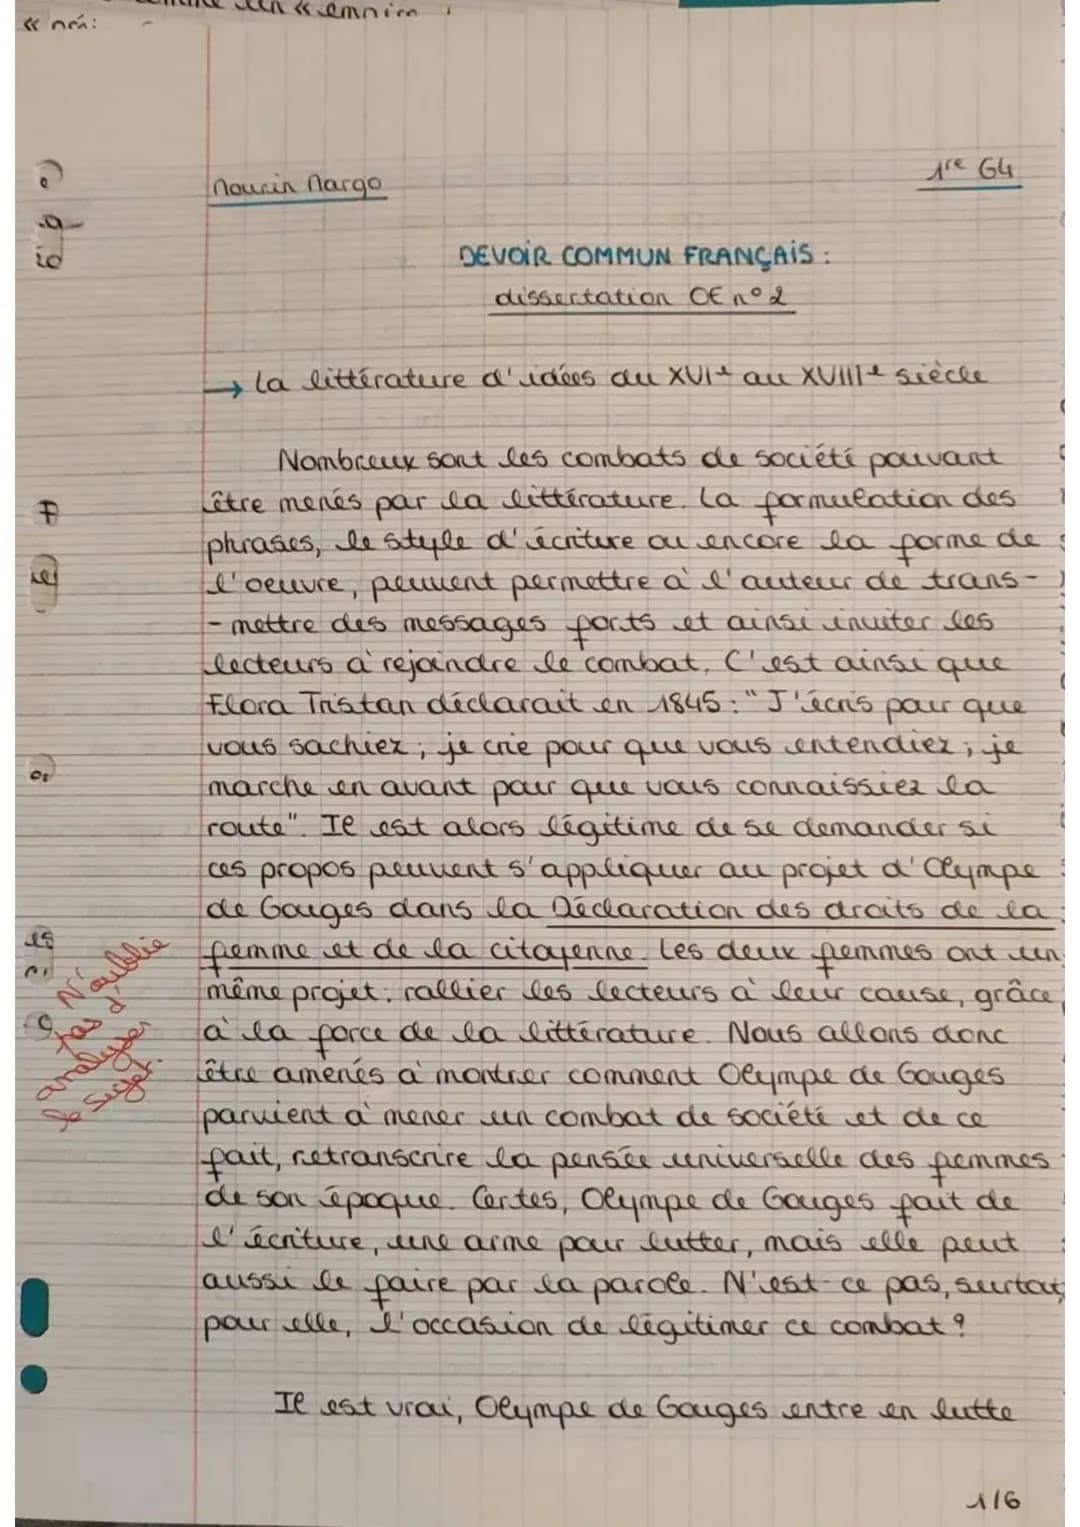 « nri:
un « empire
Mourin Margo
1re G4
DEVOIR COMMUN FRANÇAIS :
dissertation OE n°2
→ La littérature d'idées du XVIe au XVIIIe siècle
Nombreux sont les combats de société pouvant
être menés par la littérature. La formulation des
phrases, le style d'écriture ou encore la forme de
l'oeuvre, peuvent permettre à l'auteur de trans-
-mettre des messages forts et ainsi inviter les
lecteurs à rejoindre le combat. C'est ainsi que
Flora Tristan déclarait en 1845 : "J'écris pour que
vous sachiez ; je crie pour que vous entendiez ; je
marche en avant pour que vous connaissiez la
route". Il est alors légitime de se demander si
ces propos peuvent s'appliquer au projet d'Olympe
de Gouges dans la Déclaration des droits de la
femme et de la citoyenne. Les deux femmes ont un
même projet : rallier les lecteurs à leur cause, grâce
à la force de la littérature. Nous allons donc
être amenés à montrer comment Olympe de Gouges
parvient à mener un combat de société et de ce
fait, retranscrire la pensée universelle des femmes
de son époque. Certes, Olympe de Gouges fait de
l'écriture, une arme pour lutter, mais elle peut
aussi le faire par la parole. N'est-ce pas, surtout
pour elle, l'occasion de légitimer ce combat ?
Il est vrai, Olympe de Gouges entre en lutte
N'oublie
pas d'
analyser
le sujet.
1/6